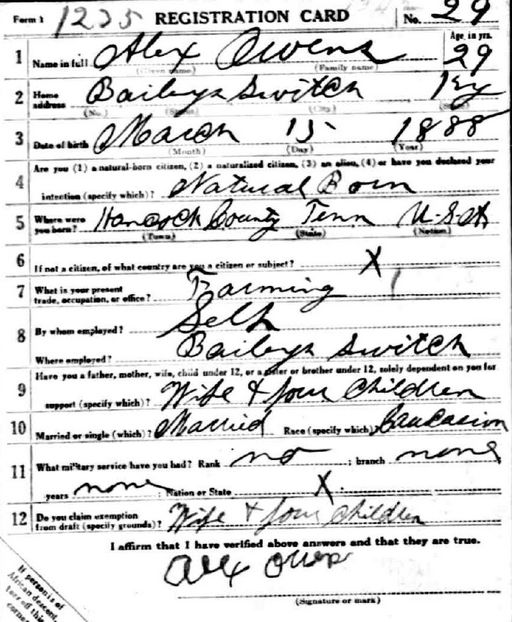 Form 1 1235 REGISTRATION CARD No. 29
1 Name in full Alex Owens Age, in yrs. 29
(Given name) (Family name)
2 Home address Baileys Switch Ky
(No.) (Street) (City) (State)
3 Date of birth March 15 1888
(Month) (Day) (Year)
Are you (1) a natural-born citizen, (2) a naturalized citizen, (3) an alien, (4) or have you declared your
4 intention (specify which)? Natural Born
5 Where were you born? Hancock County Tenn U-S-A
(Town) (State) (Nation)
6 If not a citizen, of what country are you a citizen or subject? X
7 What is your present trade, occupation, or office? Farming
8 By whom employed? Self
Where employed? Baileys Switch
Have you a father, mother, wife, child under 12, or a sister or brother under 12, solely dependent on you for
9 support (specify which)? Wife & four Children
10 Married or single (which)? Married Race (specify which)? Caucasion
11 What military service have you had? Rank no ; branch none
years none ; Nation or State X
12 Do you claim exemption from draft (specify grounds)? Wife & four Children
I affirm that I have verified above answers and that they are true.
Alex Owens
(Signature or mark)
If person is of
African descent,
tear off this
corner